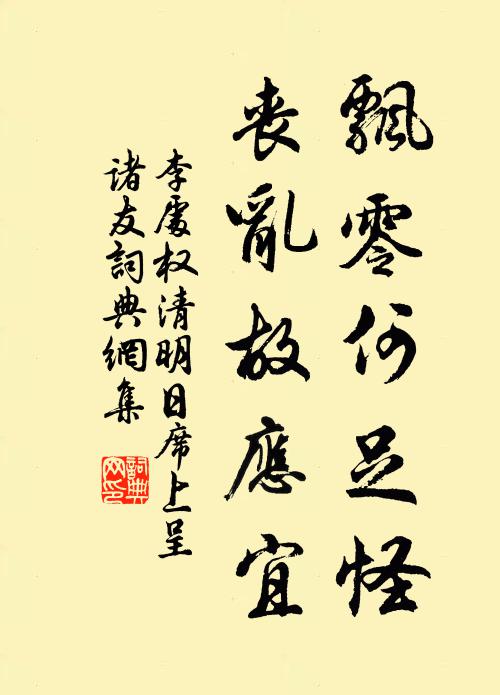 飄零何足怪
喪亂故應宜
李處权清明日席上呈
诸友詞典網集
詞典
网印